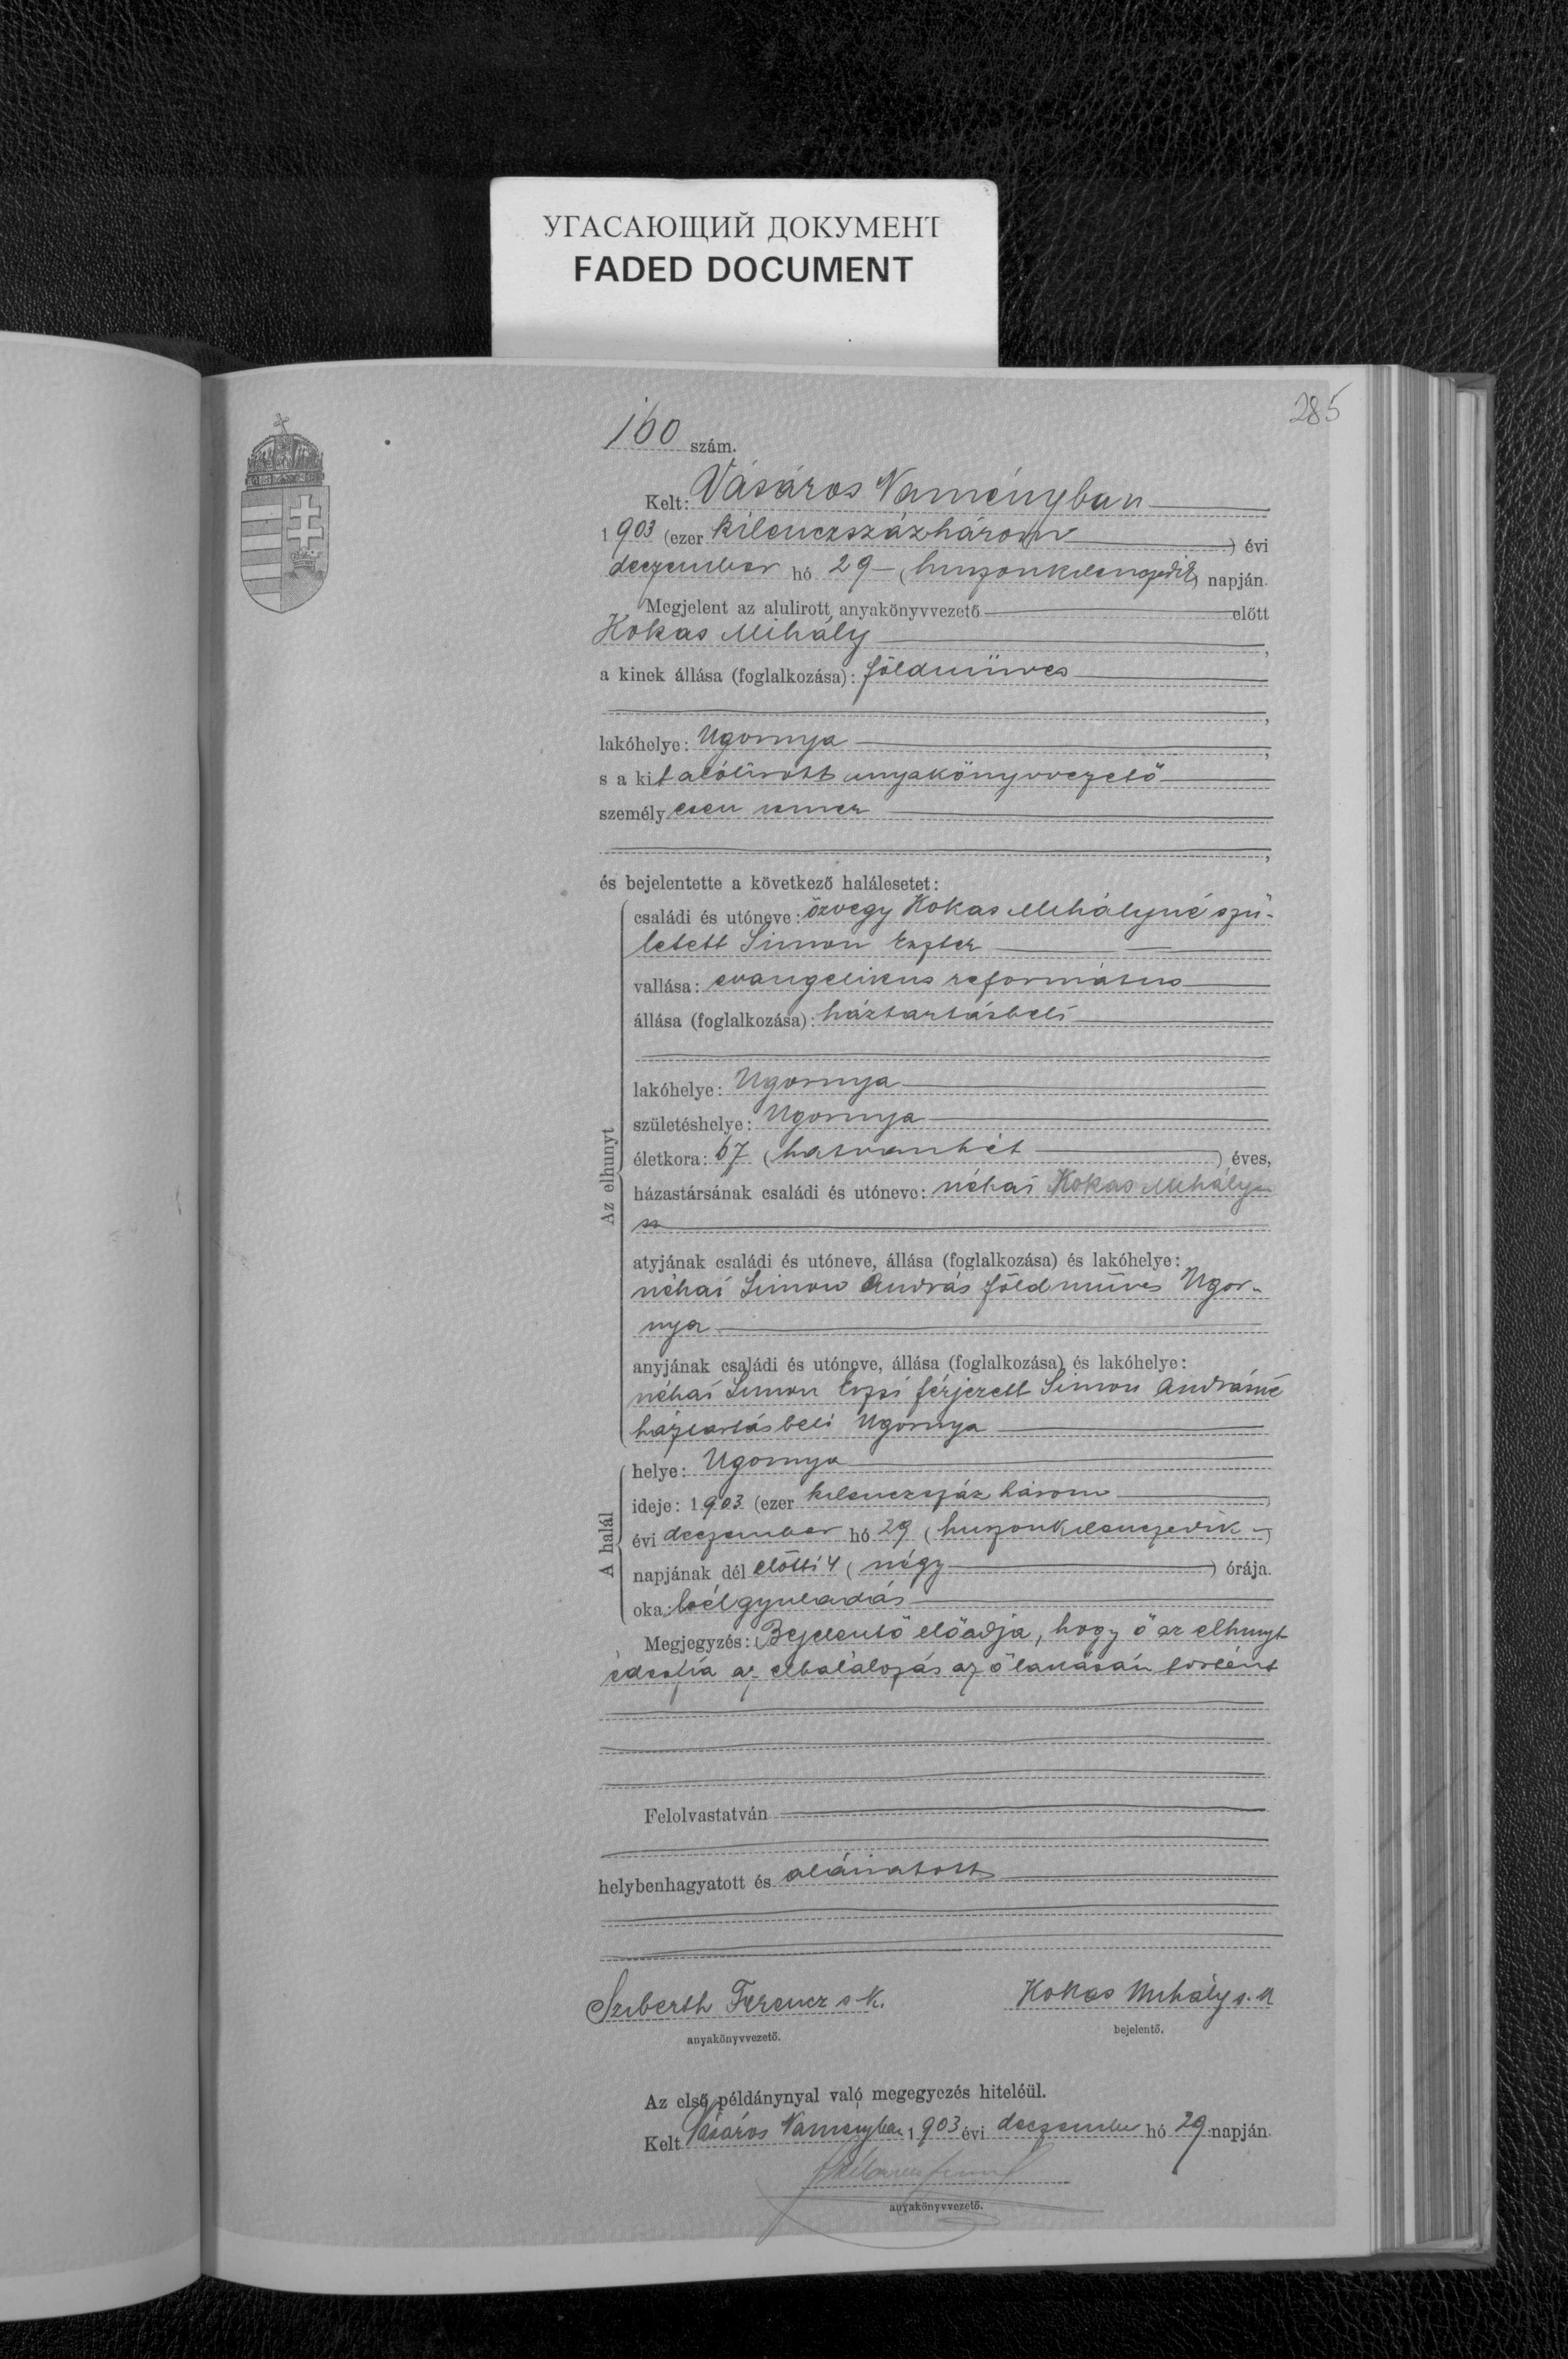 УГАСАЮЩИЙ ДОКУМЕНТ
FADED DOCUMENT
285
160 szám.
Kelt: Vásáros Naményban
1903 (ezer kilenczszázhárom) évi
deczember hó 29 (huszonkilenczedik) napján.
Megjelent az alulirott anyakönyvvezető előtt
Kokas Mihály,
a kinek állása (foglalkozása): földmüves
,
lakóhelye: Ugornya,
s a kit alólirott anyakönyvvezető
személyesen ismer
,
és bejelentette a következő halálesetet:
Az elhunyt
családi és utóneve: özvegy Kokas Mihályné szü-
letett Simon Eszter
vallása: evangelikus református
állása (foglalkozása): háztartásbeli
lakóhelye: Ugornya
születéshelye: Ugornya
életkora: 67 (hatvanhét) éves,
házastársának családi és utóneve: néhai Kokas Mihály
atyjának családi és utóneve, állása (foglalkozása) és lakóhelye:
néhai Simon András földmüves Ugor-
nya
anyjának családi és utóneve, állása (foglalkozása) és lakóhelye:
néhai Simon Erzsi férjezett Simon Andrásné
háztartásbeli Ugornya
A halál
helye: Ugornya
ideje: 1903 (ezer kilenczszáz három)
évi deczember hó 29 (huszonkilenczedik)
napjának dél előtti 4 (négy) órája.
oka: bélgyuladás
Megjegyzés: Bejelentő előadja, hogy ő az elhunyt
édesfia az elhalálozás az ő lakásán történt
Felolvastatván
helybenhagyatott és aláiratott
Sziberth Ferencz s. k.
anyakönyvvezető.
Kokas Mihály s. k
bejelentő.
Az első példánynyal való megegyezés hiteléül.
Kelt Vásáros Naményban 1903 évi deczember hó 29 napján.
anyakönyvvezető.